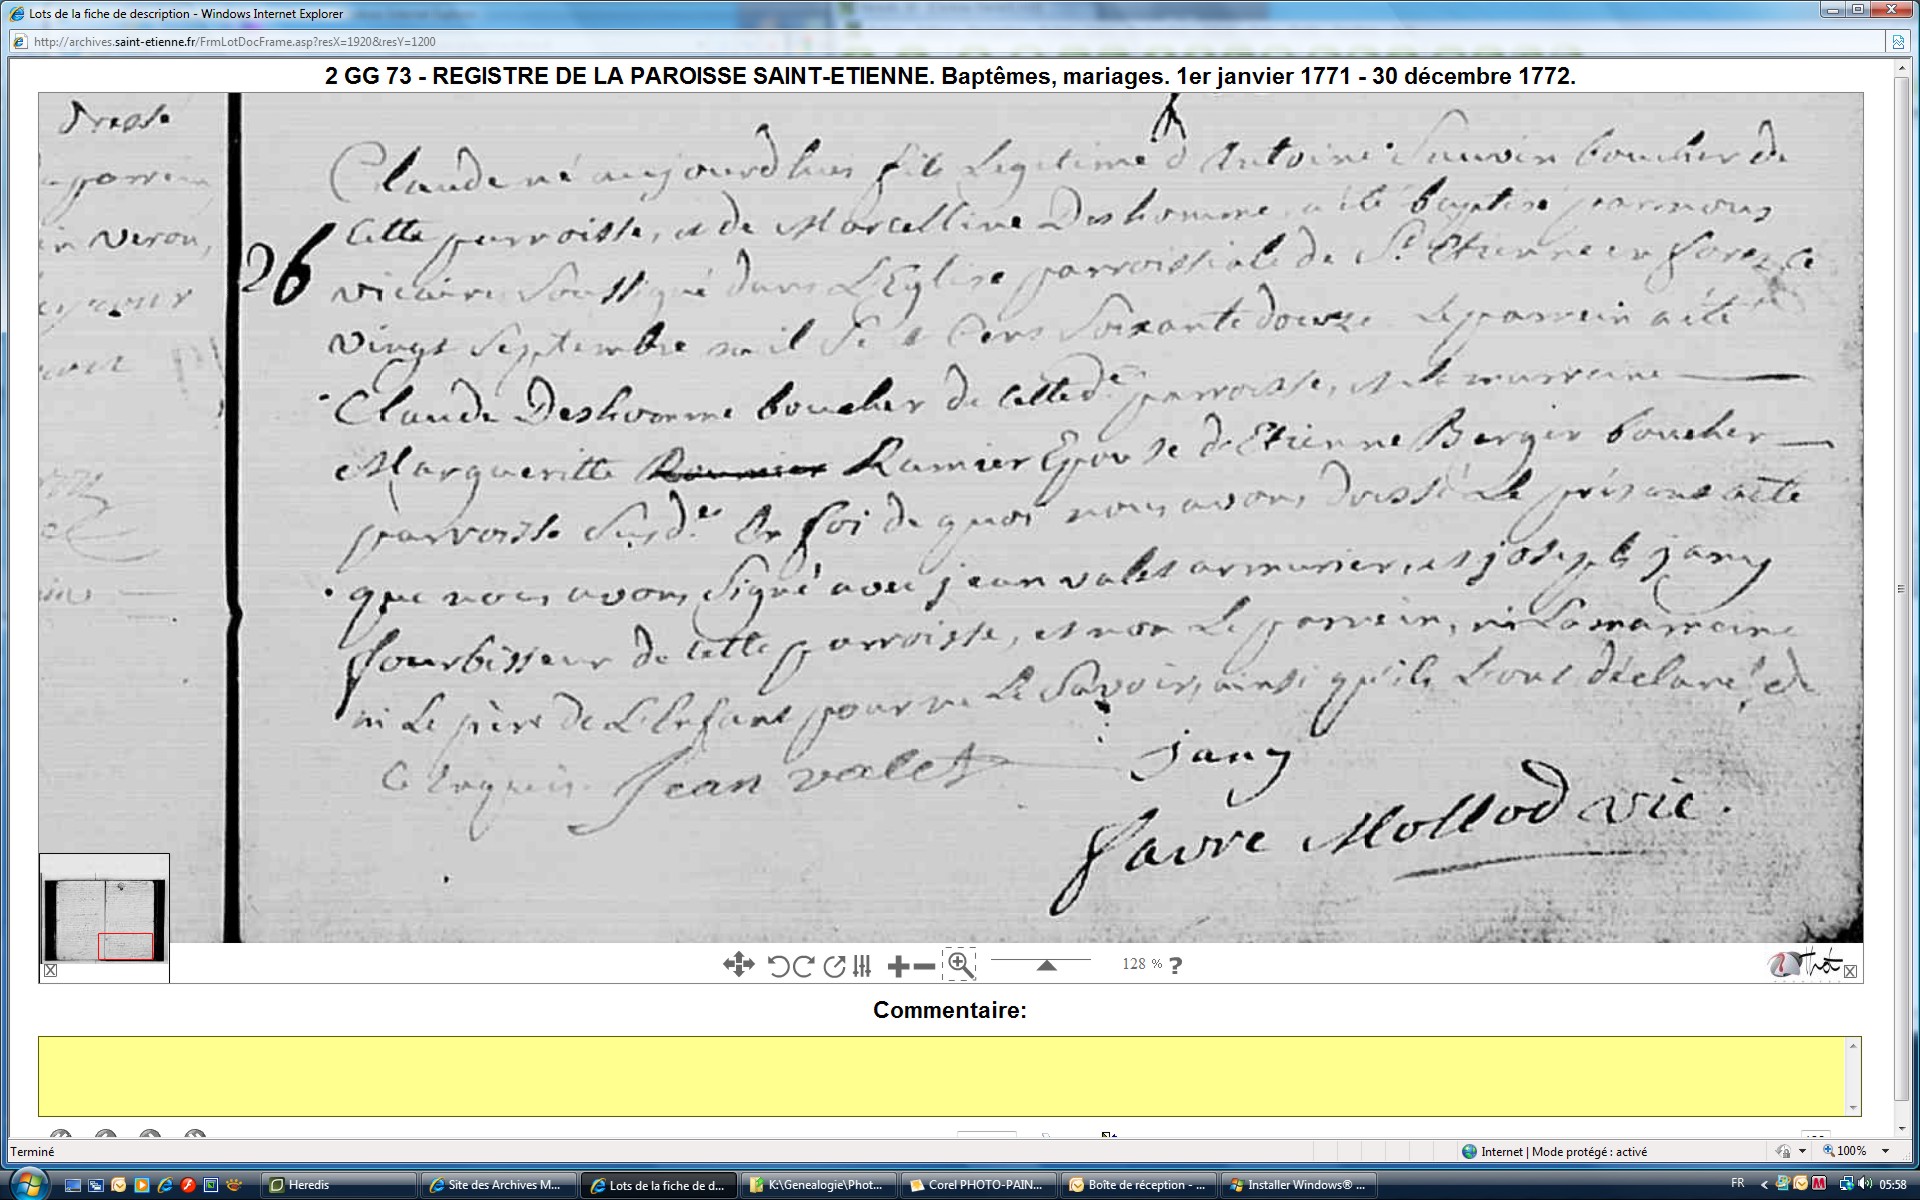 Lots de la fiche de description - Windows Internet Explorer
http://archives.saint-etienne.fr/FrmLotDocFrame.asp?resX=1920&resY=1200
2 GG 73 - REGISTRE DE LA PAROISSE SAINT-ETIENNE. Baptêmes, mariages. 1er janvier 1771 - 30 décembre 1772.
dresse
veron,
26
Claude né aujourd'huy fils Legitime d'Antoine Sauvin boucher de
Cette parroisse, et de Marcelline Deshomme, a été baptisé par nous
vicaire Soussigné dans L'Eglise parroissiale de St Etienne en forez ce
vingt Septembre mil Sept Cens Soixante douze. Le parrein a été
Claude Deshomme boucher de cette de parroisse, et la marreine
Margueritte Ramier Epouse d'Etienne Berger boucher
parroisse Susde. En foi de quoi nous avons dressé Le présent acte
que nous avons Signé avec jean valet armurier, et joseph jany
fourbisseur de cette parroisse, et non Le parrein, ni La marreine
ni Le père de L'Enfant pour ne Le Savoir, ainsi qu'ils L'ont déclaré! de
Ce Enquis. Jean valet jany
favre Mollod vic.
128 % ?
Commentaire:
Terminé
Internet | Mode protégé : activé
100%
Heredis
Site des Archives M...
Lots de la fiche de d...
K:\Genealogie\Phot...
Corel PHOTO-PAIN...
Boîte de réception - ...
Installer Windows® ...
FR
05:58